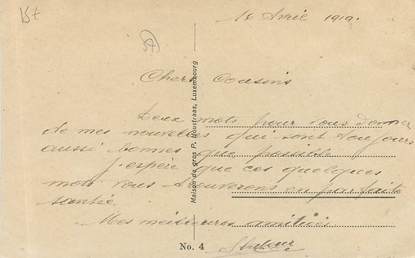 15 Avril 1919.
Chers Cousins
Deux mots pour vous donner
de mes nouvelles qui sont toujours
aussi bonnes que possible
J'espère que ces quelques
mots vous trouverons en parfaite
santée.
Mes meilleures amitiés
Maison de gros P. Houstraas, Luxembourg
No. 4